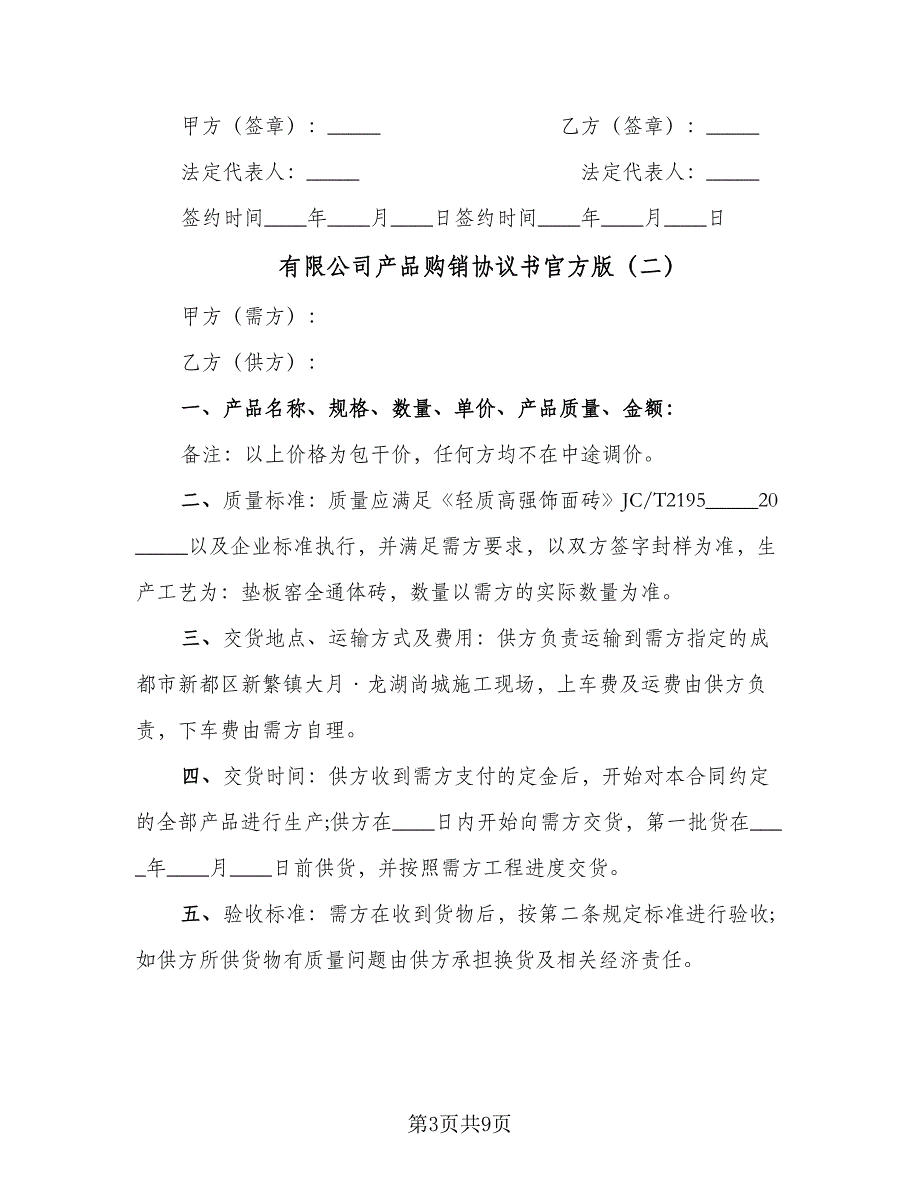 甲方（签章）：_____ 乙方（签章）：_____
法定代表人：_____ 法定代表人：_____
签约时间____年____月____日签约时间____年____月____日
有限公司产品购销协议书官方版（二）
甲方（需方）：
乙方（供方）：
一、产品名称、规格、数量、单价、产品质量、金额：
备注：以上价格为包干价，任何方均不在中途调价。
二、质量标准：质量应满足《轻质高强饰面砖》JC/T2195_____20
_____以及企业标准执行，并满足需方要求，以双方签字封样为准，生
产工艺为：垫板窑全通体砖，数量以需方的实际数量为准。
三、交货地点、运输方式及费用：供方负责运输到需方指定的成
都市新都区新繁镇大月·龙湖尚城施工现场，上车费及运费由供方负
责，下车费由需方自理。
四、交货时间：供方收到需方支付的定金后，开始对本合同约定
的全部产品进行生产;供方在____日内开始向需方交货，第一批货在___
_年____月____日前供货，并按照需方工程进度交货。
五、验收标准：需方在收到货物后，按第二条规定标准进行验收;
如供方所供货物有质量问题由供方承担换货及相关经济责任。
第3页共9页